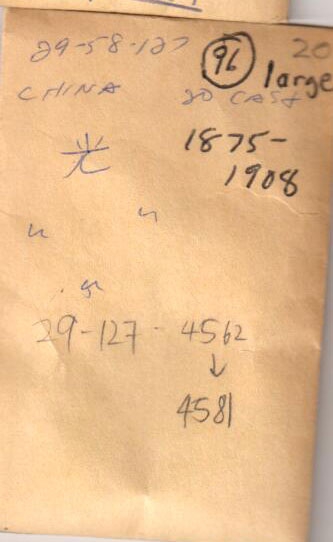 29-58-127 96 20
large
CHINA 20 CASH
光 1875-
1908
29-127- 4562
↓
4581